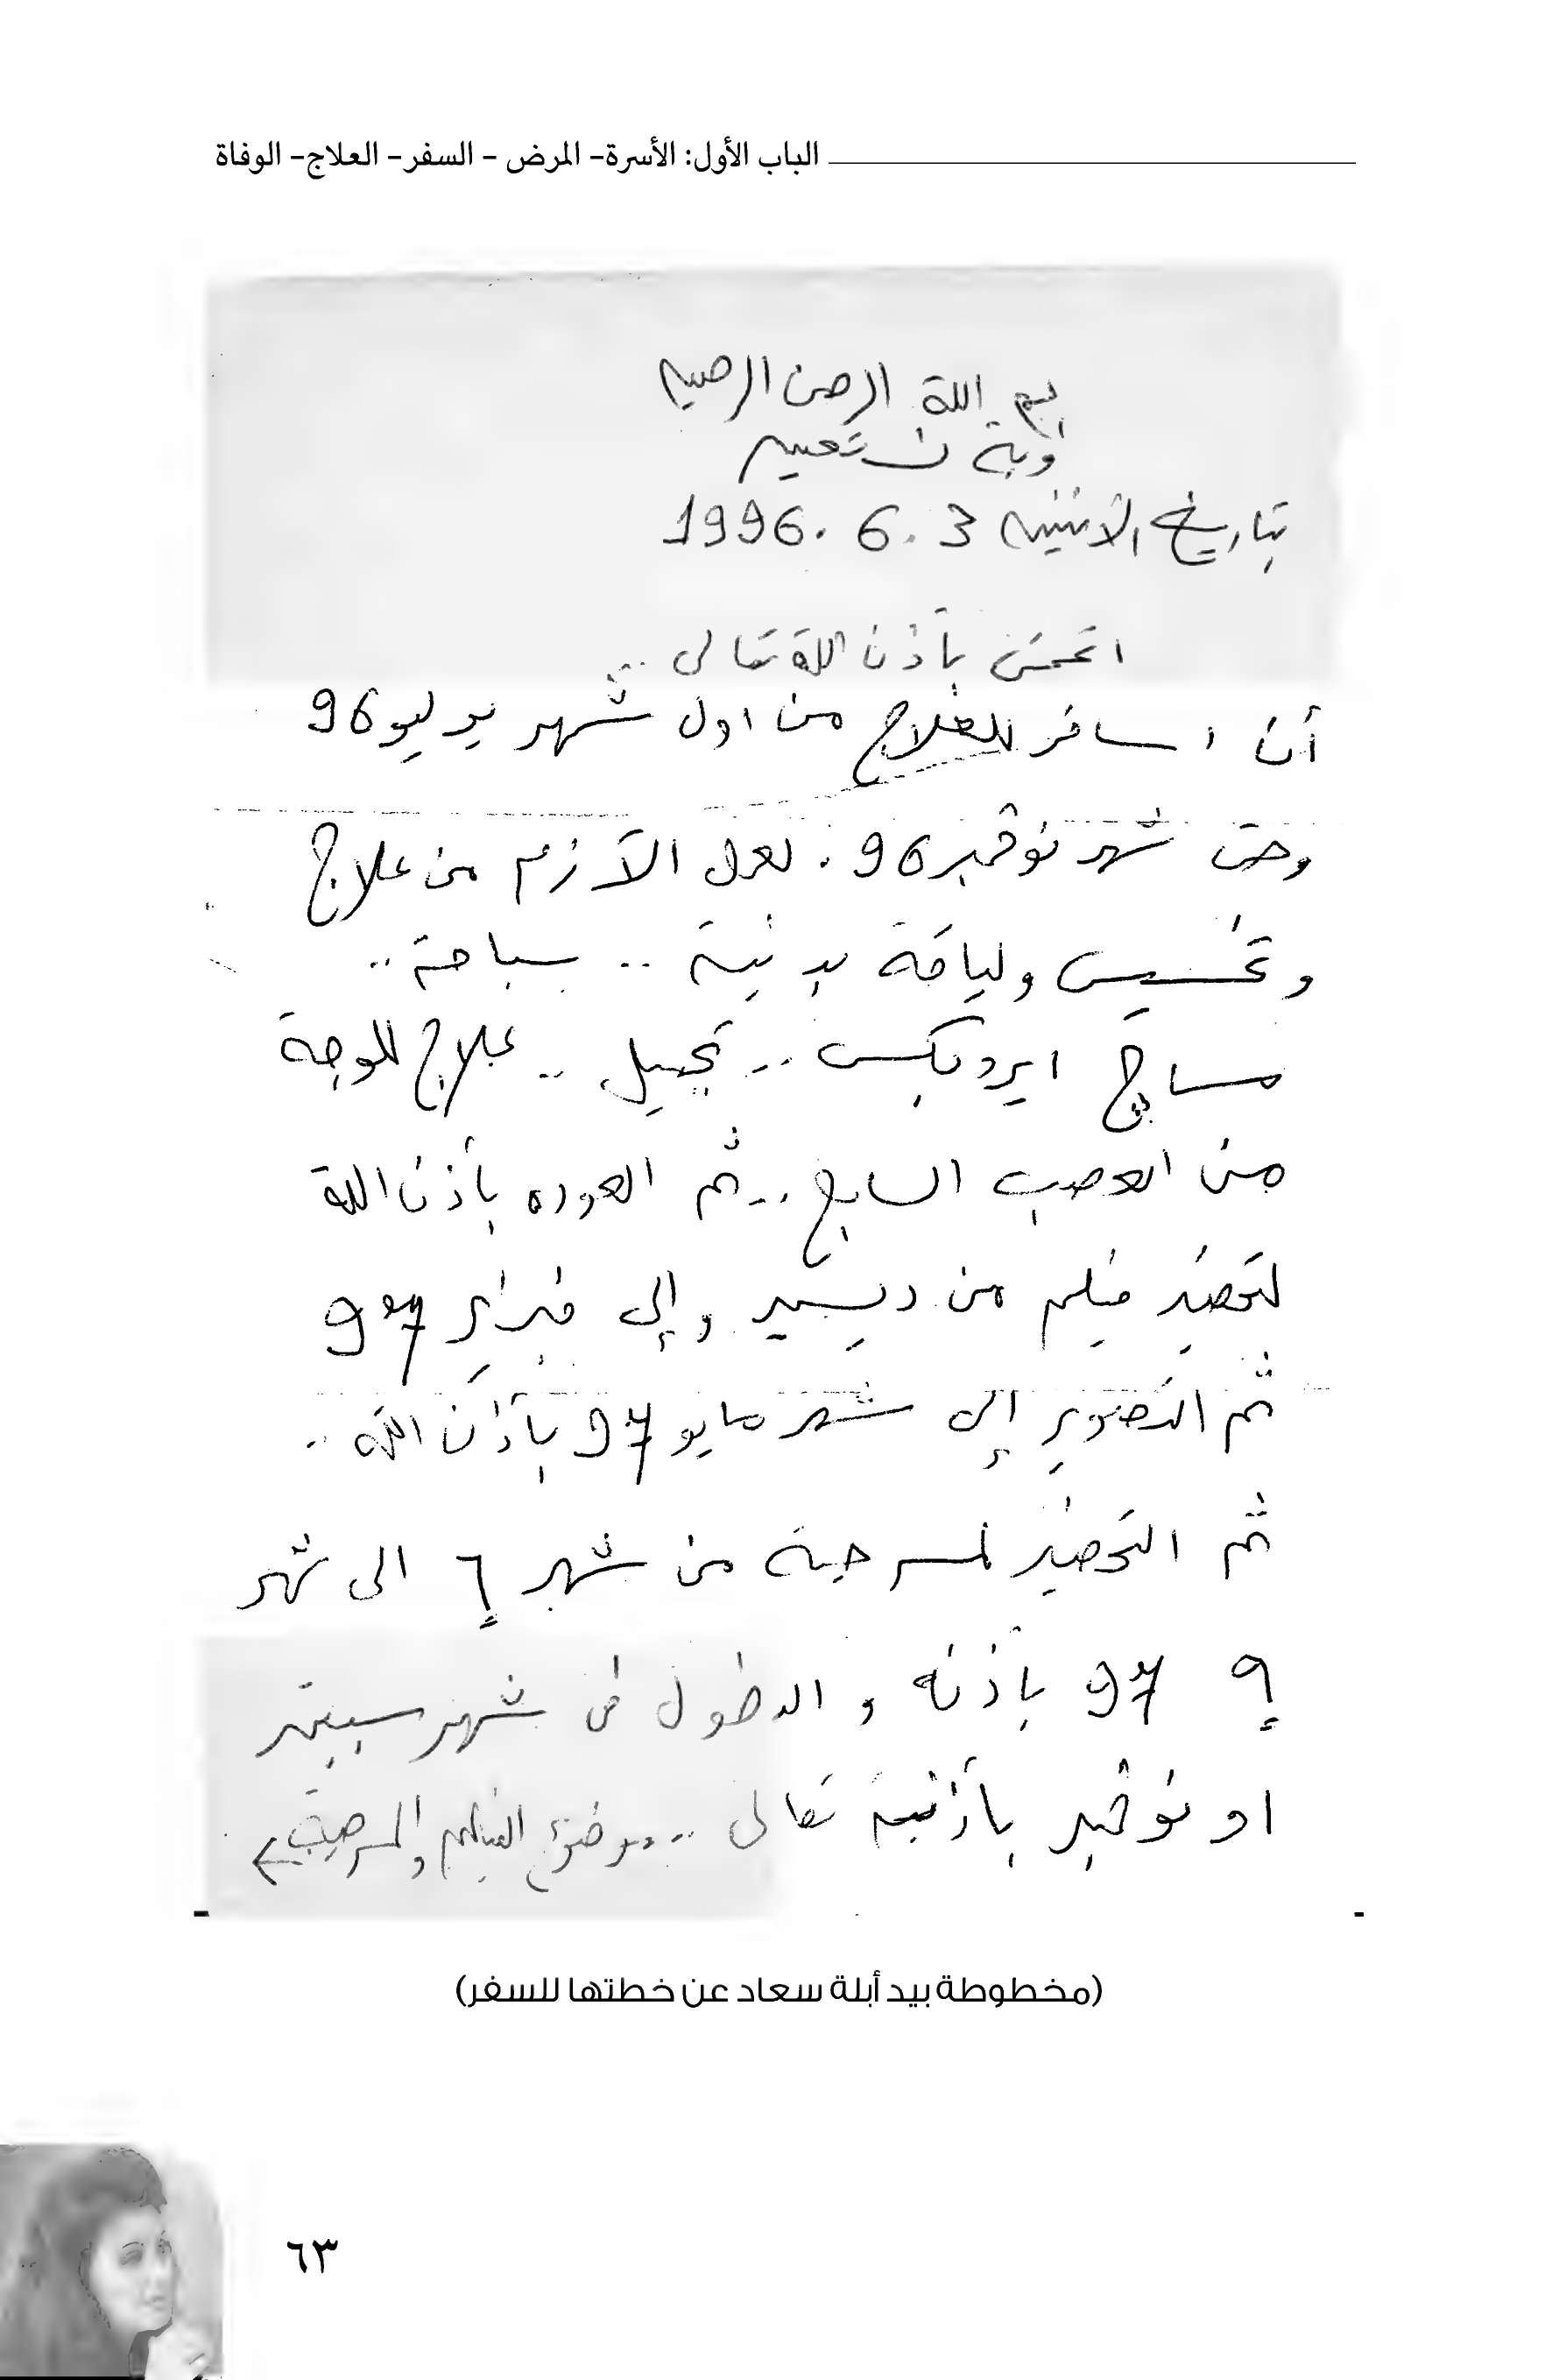 الباب الأول: الأسرة- المرض - السفر- العلاج- الوفاة
بسم اللة الرحمن الرحيم
وبة نستعين
بتاريخ الاثنين 3. 6. 1996
اتمنى بأذن اللة تعالى ..
أن اسافر للعلاج من اول شهر يوليو 96
وحتى شهر نوڤمبر 96. لعمل الآزم من علاج
وتخسيس ولياقة بدنية .. سباحة ..
مساچ ايروبكس .. تجميل .. علاج للوجة
من العصب السابع .. ثم العوده بأذن اللة
لتحضير فيلم من ديسمبر وإلى فبراير 97
ثم التصوير إلى شهر مايو 97 بأذن الله ..
ثم التحضير لمسرحية من شهر ٦ الى شهر
٩ 97 بأذنه و الدخول فى شهر سبتمبر
او نوڤمبر بأذنة تعالى .. موضوع الفيلم والمسرحية
(مخطوطة بيد أبلة سعاد عن خطتها للسفر)
٦٣